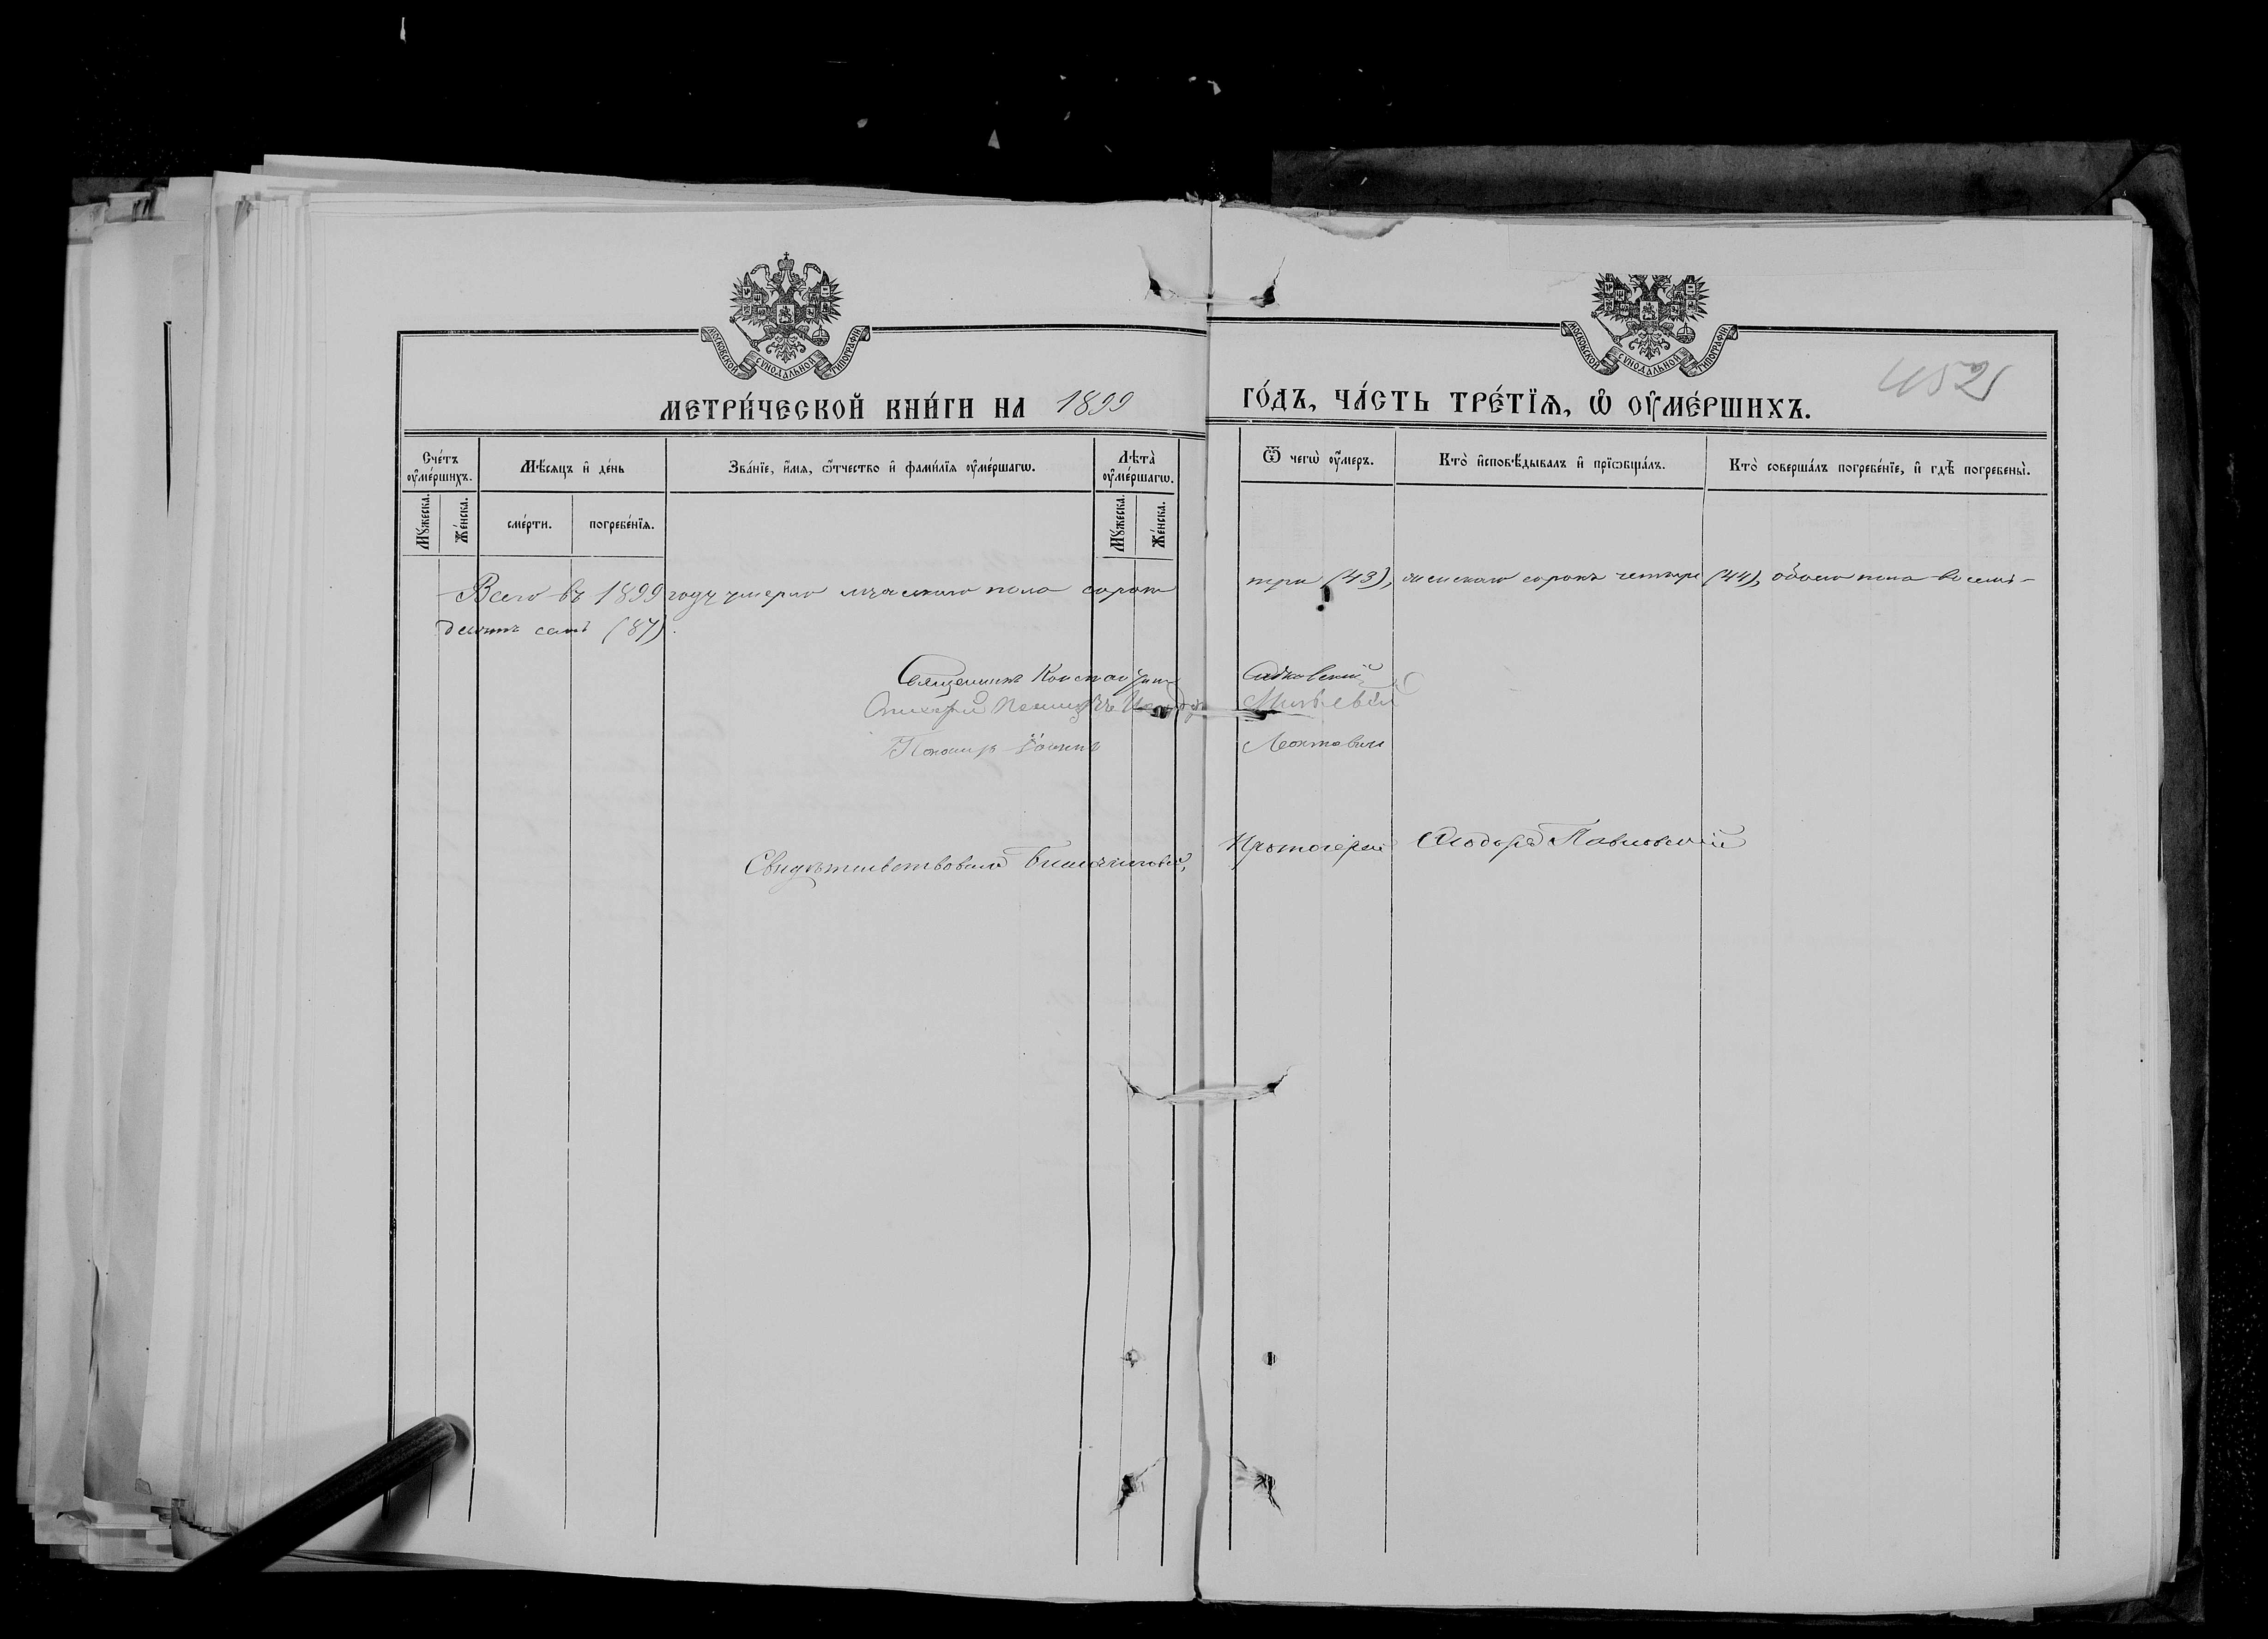 МОСКОВСКОЙ СѴНОДАЛЬНОЙ ТИПОГРАФІИ
МОСКОВСКОЙ СѴНОДАЛЬНОЙ ТИПОГРАФІИ
452
МЕТРИ́ЧЕСКОЙ КНИ́ГИ НА 1899 ГО́ДЪ, ЧА́СТЬ ТРЕ́ТЇѦ, Ѡ҆ ОУ҆МЕ́РШИХЪ.
Сче́тъ оу҆ме́ршихъ.
Мꙋ́жеска.
Же́нска.
Мѣ́сѧцъ и҆ де́нь
сме́рти.
погребе́нїѧ.
Зва́нїе, и҆́мѧ, ѻ҆́тчество и҆ фами́лїѧ оу҆ме́ршагѡ.
Лѣ́та оу҆ме́ршагѡ.
Мꙋ́жеска.
Же́нска.
Ѿ чегѡ̀ оу҆́меръ.
Кто̀ и҆сповѣ́дывалъ и҆ прїѡбща́лъ.
Кто̀ соверша́лъ погребе́нїе, и҆ гдѣ̀ погребены̀.
Всего въ 1899 году умерло мужескаго пола сорокъ три (43), женскаго сорокъ четыре (44), обоего пола восемь-
десятъ семь (87).
Священникъ Константинъ Садковскій
Пономарь Іоаннъ Леонтовичъ
Свидѣтельствовалъ Благочинный, Протоіерей Ѳеодоръ Павловскій